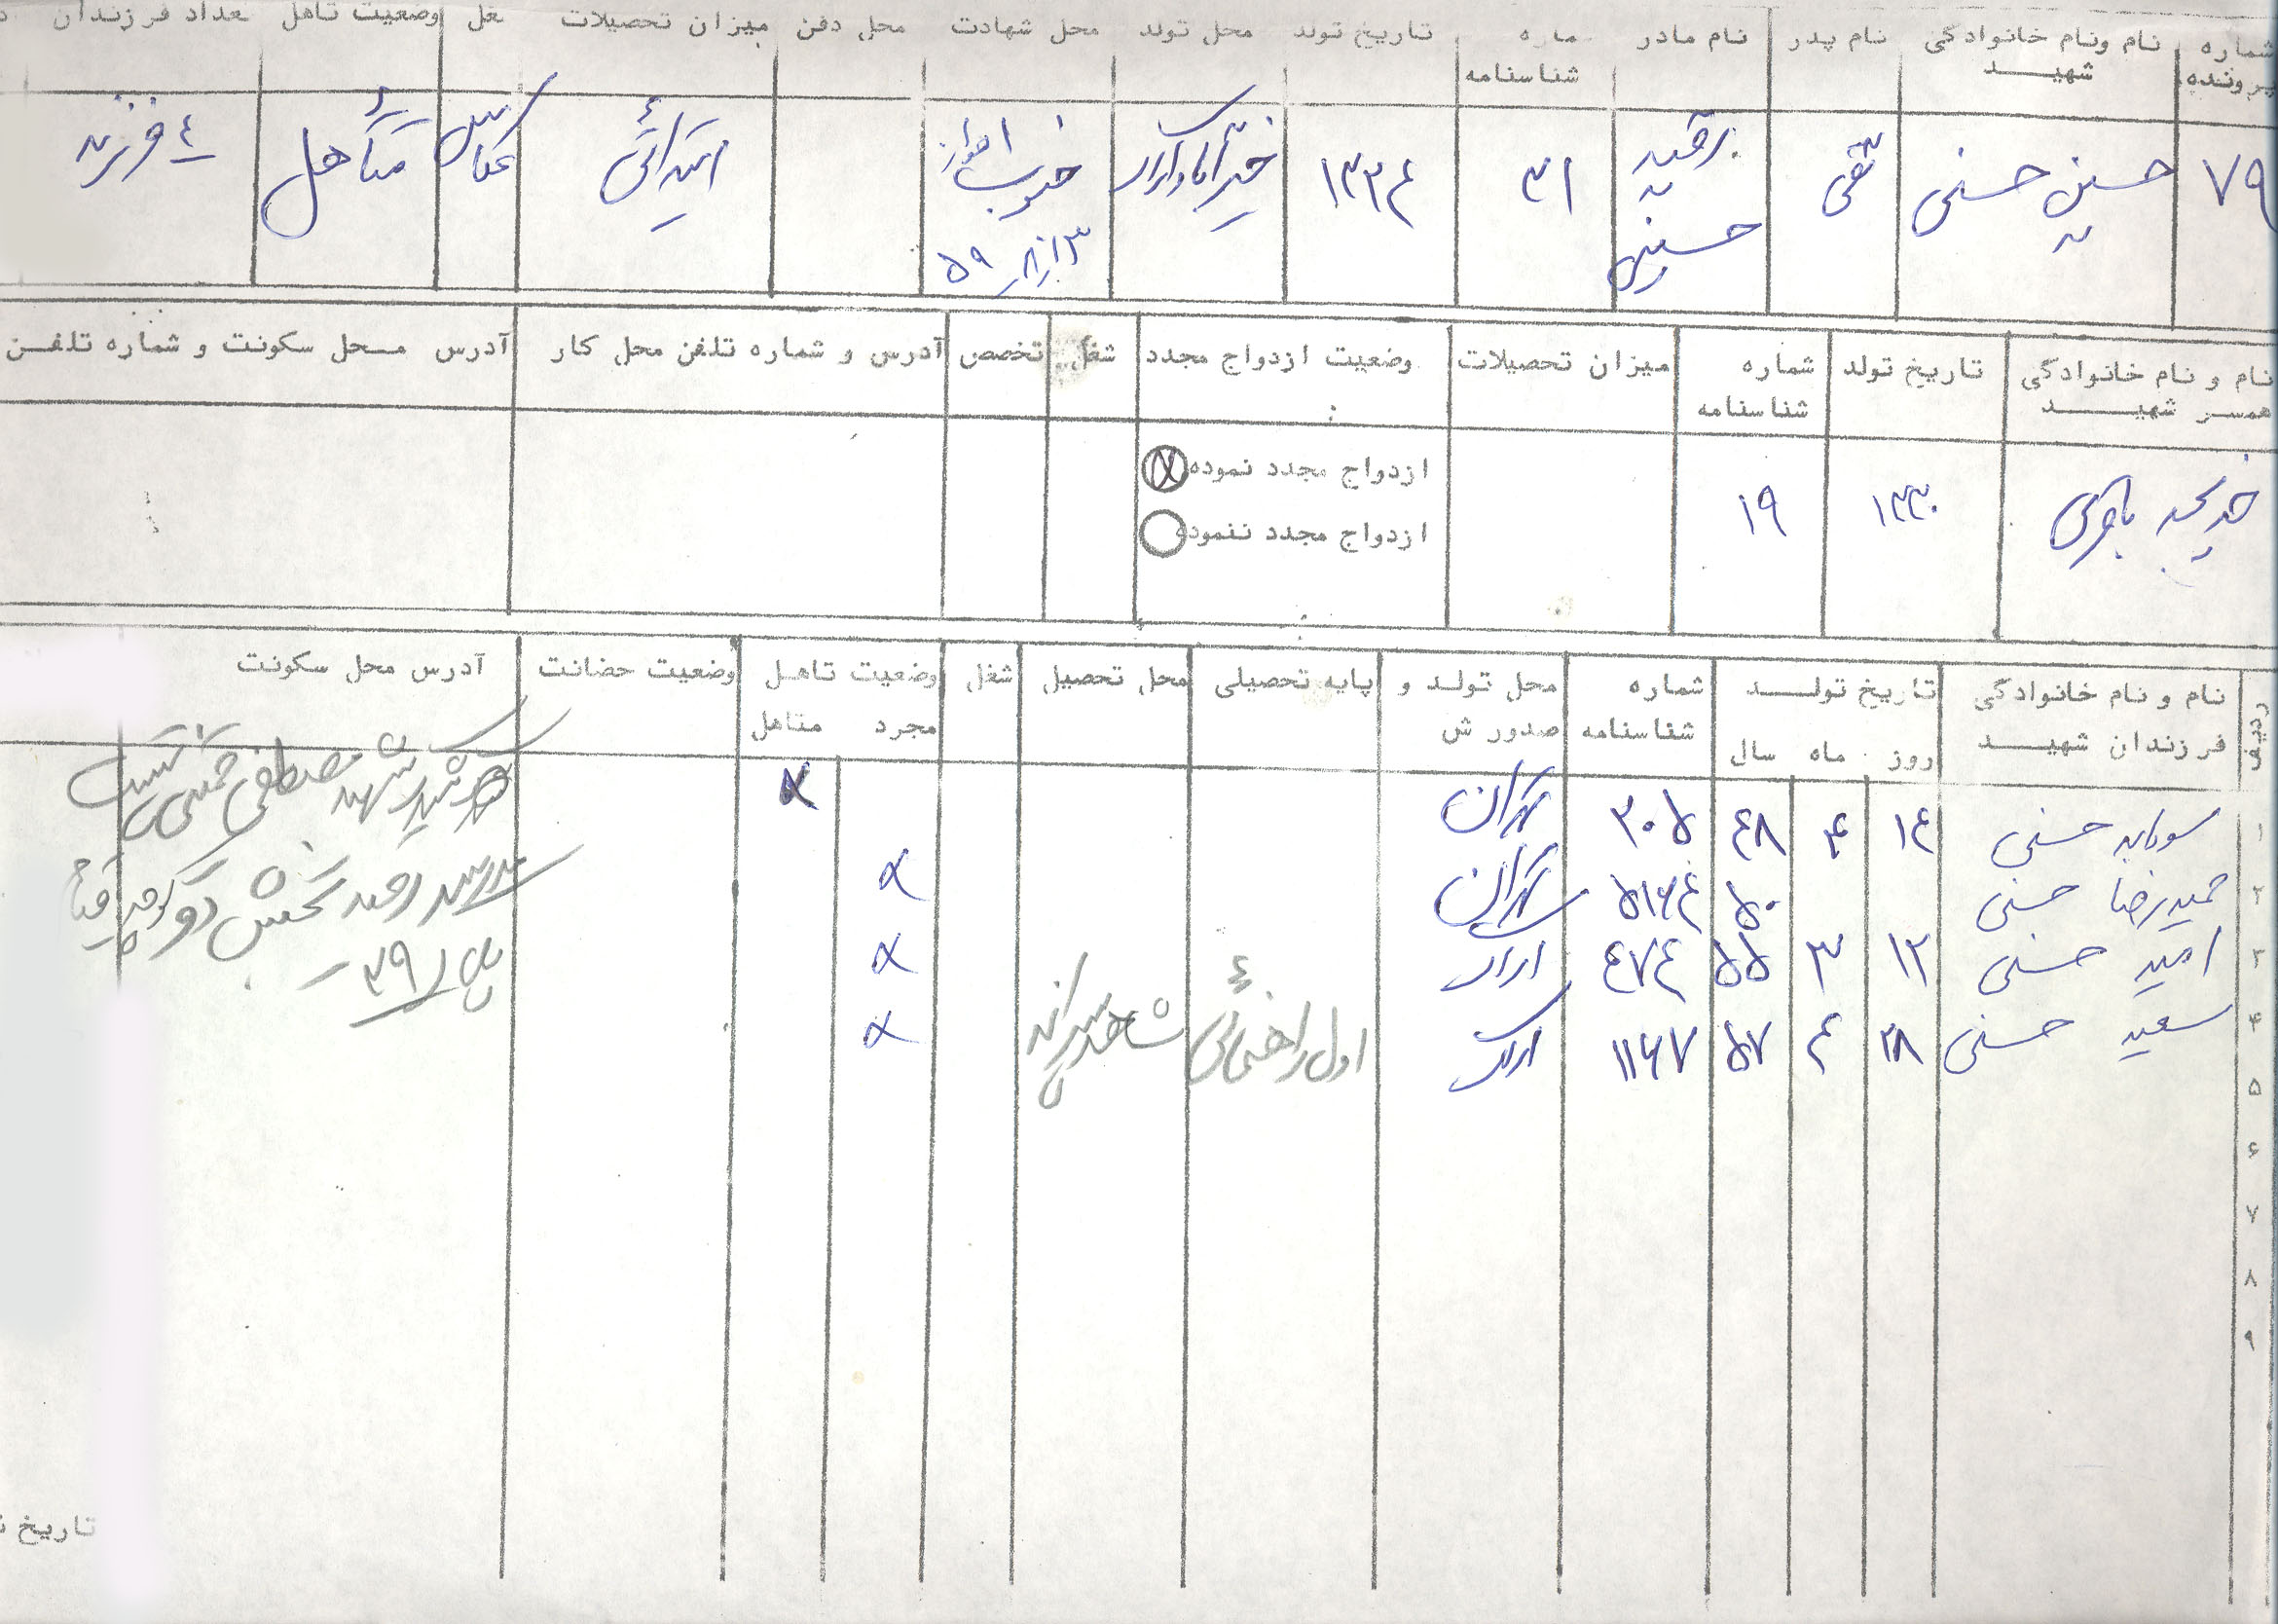 شماره پرونده | نام ونام خانوادگی شهیـــد | نام پدر | نام مادر | ماره شناسنامه | تاریخ تولد | محل تولد | محل شهادت | محل دفن | میزان تحصیلات | غل | وضعیت تاهل | عداد فرزندان
۷۹ | حسین حسنی | تقی | حسینی | ۳۱ | ۱۳۲۴ | خیرآباد اراک | اهواز ۵۹ | ابتدائی | عکاس | متأهل | ٤ فرزند
نام و نام خانوادگی همسر شهیـــد | تاریخ تولد | شماره شناسنامه | میزان تحصیلات | وضعیت ازدواج مجدد | شغل | تخصص | آدرس و شماره تلفن محل کار | آدرس محل سکونت و شماره تلفن
خدیجه باقری | ۱۳۳۰ | ۱۹ | ازدواج مجدد نموده X
ازدواج مجدد ننموده
ردیف | نام و نام خانوادگی فرزندان شهیـــد | تاریخ تولـــد روز ماه سال | شماره شناسنامه | محل تولد و صدور ش | پایه تحصیلی | محل تحصیل | شغل | وضعیت تاهل مجرد متاهل | وضعیت حضانت | آدرس محل سکونت
۱ | سودابه حسنی | ۱۴ | ۴ | ۴۸ | ۳۰۵ | تهران | x
۲ | حمیدرضا حسنی | ۵۰ | ۵۱۶۴ | تهران | x
۳ | امید حسنی | ۱۲ | ۳ | ۵۵ | ۴۷۴ | اراک | x
۴ | سعید حسنی | ۲۸ | ۴ | ۵۷ | ۱۱۶۷ | اراک | اول راهنمائی | شاهد پسرانه | x
شهید مصطفی خمینی
نرسیده کوچه
پلاک ۳۹
۵
۶
۷
۸
۹
تاریخ